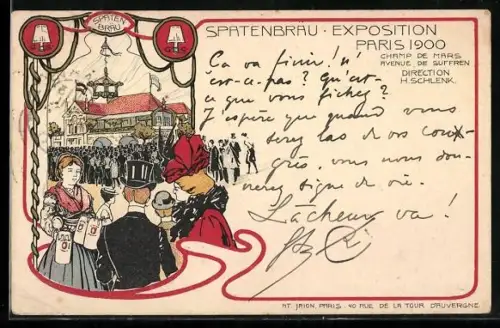 SPATEN
BRÄU
G S
G S
SPATENBRÄU · EXPOSITION
PARIS 1900
CHAMP DE MARS
AVENUE DE SUFFREN
DIRECTION
H. SCHLENK.
Ça va finir! n'
est-ce-pas? Qu'est-
ce que vous fichez?
J'espère que quand vous
serez las de vos con-
grès, vous nous don-
nerez signe de vie.
Lâcheur va!
PARIS 40 RUE DE LA TOUR D'AUVERGNE